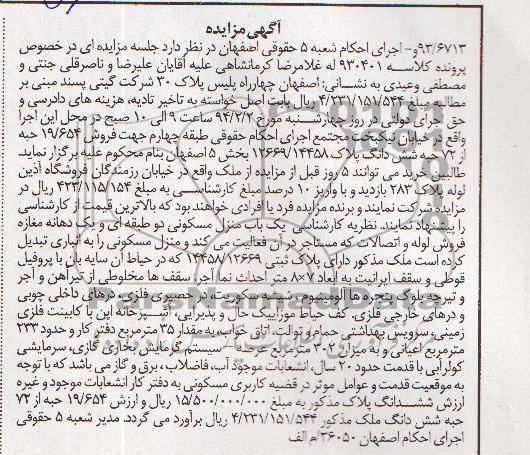 آگهی مزایده
۹۳/۶۷۱۳و- اجرای احکام شعبه ۵ حقوقی اصفهان در نظر دارد جلسه مزایده ای در خصوص
پرونده کلاسه ۹۳۰۴۰۱ له غلامرضا کرمانشاهی علیه آقایان علیرضا و ناصرقلی جنتی و
مصطفی وعیدی به نشانی: اصفهان چهارراه پلیس پلاک ۳۰ شرکت گیتی پسند مبنی بر
مطالبه مبلغ ۴/۲۳۱/۱۵۱/۵۳۴ ریال بابت اصل خواسته به تاخیر تادیه، هزینه های دادرسی و
حق اجرای دولتی در روز چهارشنبه مورخ ۹۴/۲/۲ ساعت ۹ الی ۱۰ صبح در محل این اجرا
واقع در خیابان نیکبخت مجتمع اجرای احکام حقوقی طبقه چهارم جهت فروش ۱۹/۶۵۴ حبه
از ۷۲ حبه شش دانگ پلاک ۱۲۶۶۹/۱۴۴۵۸ بخش ۵ اصفهان بنام محکوم علیه برگزار نماید.
طالبین خرید می توانند ۵ روز قبل از مزایده از ملک واقع در خیابان رزمندگان فروشگاه آذین
لوله پلاک ۲۸۲ بازدید و با واریز ۱۰ درصد مبلغ کارشناسی به مبلغ ۴۲۳/۱۱۵/۱۵۴ ریال در
مزایده شرکت نمایند و برنده مزایده فرد یا افرادی خواهند بود که بالاترین قیمت از کارشناسی
را پیشنهاد نمایند. نظریه کارشناسی یک باب منزل مسکونی دو طبقه ای و یک دهانه مغازه
فروش لوله و اتصالات که مستاجر در آن فعالیت می کند و منزل مسکونی را به انباری تبدیل
کرده است ملک مذکور دارای پلاک ثبتی ۱۴۴۵۸/۱۲۶۶۹ که در حیاط آن سایه بان با پروفیل
قوطی و سقف ایرانیت به ابعاد ۷×۸ متر احداث نما آجر سقف ها مخلوطی از تیرآهن و آجر
و تیرچه بلوک پنجره ها آلومینیوم، شیشه سکوریت، در حصیری فلزی، درهای داخلی چوبی
و درهای خارجی فلزی. کف حیاط موزاییک حال و پذیرایی، آشپزخانه اپن با کابینت فلزی
زمینی، سرویس بهداشتی حمام و توالت. اتاق خواب به مقدار ۳۵ مترمربع دفتر کار و حدود ۲۳۳
مترمربع اعیانی و به میزان ۳۰۲ مترمربع عرصه - سیستم گرمایش بخاری گازی، سرمایشی
کولر آبی با قدمت حدود ۲۰ سال، انشعابات موجود آب، فاضلاب، برق و گاز می باشد که با توجه
به موقعیت قدمت و عوامل موثر در قضیه کاربری مسکونی به دفتر کار انشعابات موجود و غیره
ارزش ششدانگ پلاک مذکور به مبلغ ۱۵/۵۰۰/۰۰۰/۰۰۰ ریال و ارزش ۱۹/۶۵۴ حبه از ۷۲
حبه شش دانگ ملک مذکور ۴/۲۳۱/۱۵۱/۵۴۴ ریال برآورد می گردد. مدیر شعبه ۵ حقوقی
اجرای احکام اصفهان ۳۶۰۵۰/م الف